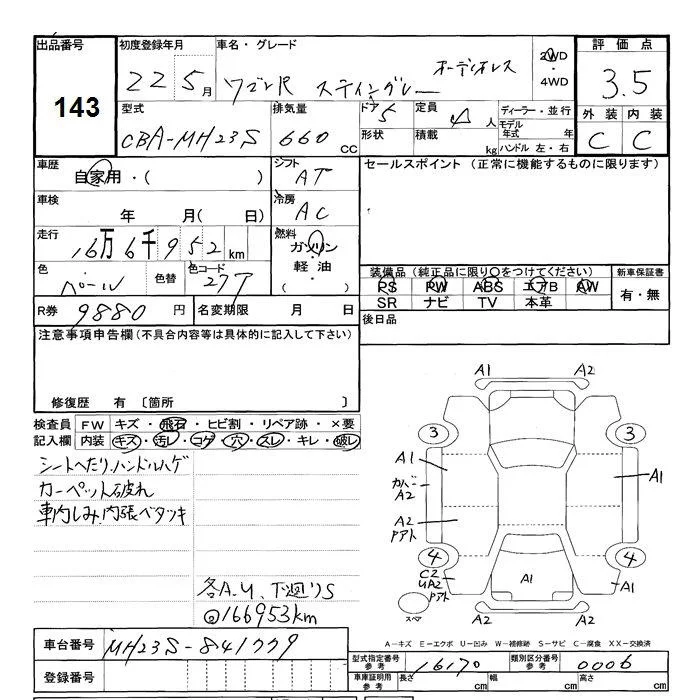 出品番号 初度登録年月 車名・グレード 評価点
143
22 5月 ワゴンR スティングレー オーディオレス 2WD・4WD 3.5
型式 排気量 ドア 定員 ディーラー・並行 外装 内装
CBA-MH23S 660 CC 5 4人 モデル年式 年 C C
形状 積載 kg ハンドル 左・右
車歴 自家用・( ) シフト AT セールスポイント (正常に機能するものに限ります)
車検 年 月( 日) 冷房 AC
走行 16万6千952km 燃料 ガソリン・軽油・( )
色 パール 色替 色コード 27T 装備品 (純正品に限り○をつけてください) 新車保証書
PS PW ABS エアB AW 有・無
SR ナビ TV 本革
R券 9880円 名変期限 月 日 後日品
注意事項申告欄(不具合内容等は具体的に記入して下さい)
修復歴 有 〔箇所 〕
検査員 FW キズ・飛石・ヒビ割・リペア跡・×要
記入欄 内装 キズ・汚レ・コゲ・穴・スレ・キレ・破レ
シートへたり、ハンドルハゲ
カーペット破れ
車内しみ、内張ベタツキ
各A.U、下廻りS
@166953km
A1 A2
3 3
A1 A1
カバーA2
A2
アアト
4 4
C2
UA2
アアト
A1 A1
スペア
A2 A2
A-キズ E-エクボ U-凹み W-補修跡 S-サビ C-腐食 XX-交換済
車台番号 MH23S-841779 型式指定番号 参考 16170 類別区分番号 参考 0006
登録番号 車庫証明用 参考 長さ cm 幅 cm 高さ cm